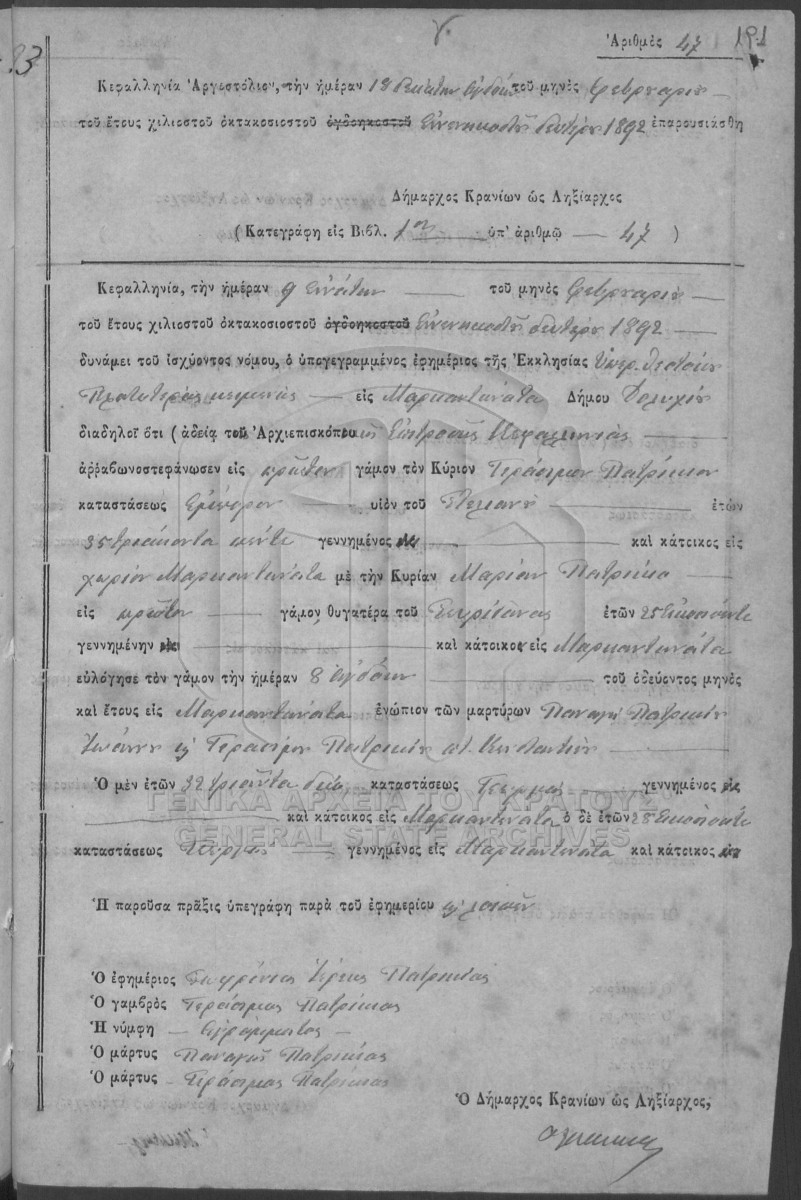 Ἀριθμὸς 47 191
γ.
33
Κεφαλληνία Ἀργοστόλιον, τὴν ἡμέραν 18 δεκάτην ὀγδόην τοῦ μηνὸς Φεβρουαρίου
τοῦ ἔτους χιλιοστοῦ ὀκτακοσιοστοῦ ὀγδοηκοστοῦ Ἐννενηκοστοῦ δευτέρου 1892 ἐπαρουσιάσθη
Δήμαρχος Κρανίων ὡς Ληξίαρχος
( Κατεγράφη εἰς Βιβλ. 1ον ὑπ' ἀριθμῷ 47 )
Κεφαλληνία, τὴν ἡμέραν 9 Ἐννάτην τοῦ μηνὸς Φεβρουαρίου
τοῦ ἔτους χιλιοστοῦ ὀκτακοσιοστοῦ ὀγδοηκοστοῦ Ἐννενηκοστοῦ δευτέρου 1892
δυνάμει τοῦ ἰσχύοντος νόμου, ὁ ὑπογεγραμμένος ἐφημέριος τῆς Ἐκκλησίας Ὑπερ. Θεοτόκου
Πλατυτέρας εἰς Μαρκαντωνάτα Δήμου
διαδηλοῖ ὅτι ( ἀδείᾳ τοῦ Ἀρχιεπισκόπου Ἐπιτροπῆς Κεφαλληνίας
ἀῤῥαβωνοστεφάνωσεν εἰς πρῶτον γάμον τὸν Κύριον Γεράσιμον Πατρίκιον
καταστάσεως Ἔμπορον υἱὸν τοῦ Στυλιανοῦ ἐτῶν
35 τριάκοντα πέντε γεννημένος καὶ κάτοικος εἰς
χωρίον Μαρκαντωνάτα μὲ τὴν Κυρίαν Μαρίαν Πατρίκιο
εἰς πρῶτον γάμον θυγατέρα τοῦ ἐτῶν 25 Εἰκοσιπέντε
γεννημένην καὶ κάτοικος εἰς Μαρκαντωνάτα
εὐλόγησε τὸν γάμον τὴν ἡμέραν 8 ὀγδόην τοῦ ὁδεύοντος μηνὸς
καὶ ἔτους εἰς Μαρκαντωνάτα ἐνώπιον τῶν μαρτύρων Παναγῆ Πατρικίου
Ἰωάννου καὶ Γερασίμου Πατρικίου Κωνσταντίνου
Ὁ μὲν ἐτῶν 32 τριάντα δύο καταστάσεως Γεωργὸς γεννημένος εἰς
ΓΕΝΙΚΑ ΑΡΧΕΙΑ ΤΟΥ ΚΡΑΤΟΥΣ
καὶ κάτοικος εἰς Μαρκαντωνάτα ὁ δὲ ἐτῶν 25 Εἰκοσιπέντε
GENERAL STATE ARCHIVES
καταστάσεως Γεωργὸς γεννημένος εἰς Μαρκαντωνάτα καὶ κάτοικος εἰς
Ἡ παροῦσα πρᾶξις ὑπεγράφη παρὰ τοῦ ἐφημερίου καὶ λοιπῶν
Ὁ ἐφημέριος Σωφρόνιος Ἱερεὺς Πατρίκιος
Ὁ γαμβρὸς Γεράσιμος Πατρίκιος
Ἡ νύμφη Ἀγράμματος
Ὁ μάρτυς Παναγῆς Πατρίκιος
Ὁ μάρτυς Γεράσιμος Πατρίκιος
Ὁ Δήμαρχος Κρανίων ὡς Ληξίαρχος,